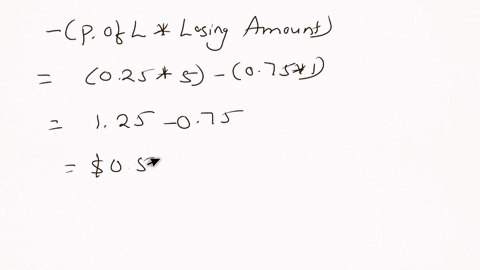 -(P. of L * Losing Amount)
= (0.25 * 5) - (0.75*1)
= 1.25 - 0.75
= $0.5